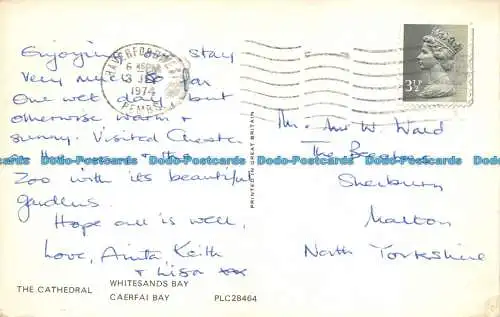 Enjoying stay
Very much so far
One wet day but
otherwise warm &
sunny. Visited Chester
on the way & the
Zoo with its beautiful
gardens.
Hope all is well,
Love, Anita, Keith
& Lisa xxx
THE CATHEDRAL
WHITESANDS BAY
CAERFAI BAY
PLC28464
PRINTED IN GREAT BRITAIN
HAVERFORDWEST
6 45PM
3 JUN
1974
PEMBS
3½
Mr. & Mrs W. Ward
The
Sherburn
Malton
North Yorkshire
Dodo-Postcards Dodo-Postcards Dodo-Postcards Dodo-Postcards Dodo-Postcards